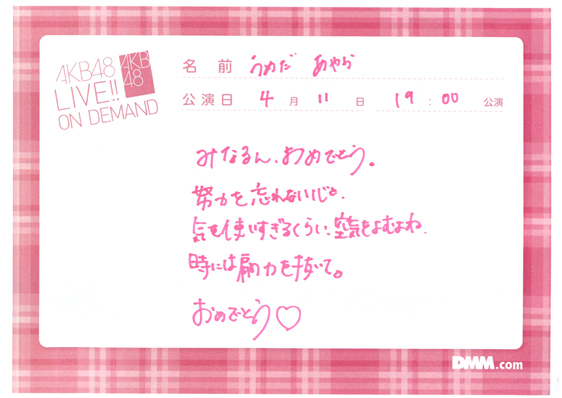 AKB48
LIVE!!
ON DEMAND
AKB
48
名 前 うめだ あやか
公演日 4 月 11 日 19:00 公演
みなるん、おめでとう。
努力を忘れないじと、
気を使いすぎるくらい、空気をよむよね、
時には肩の力を抜いて。
おめでとう♡
DMM.com